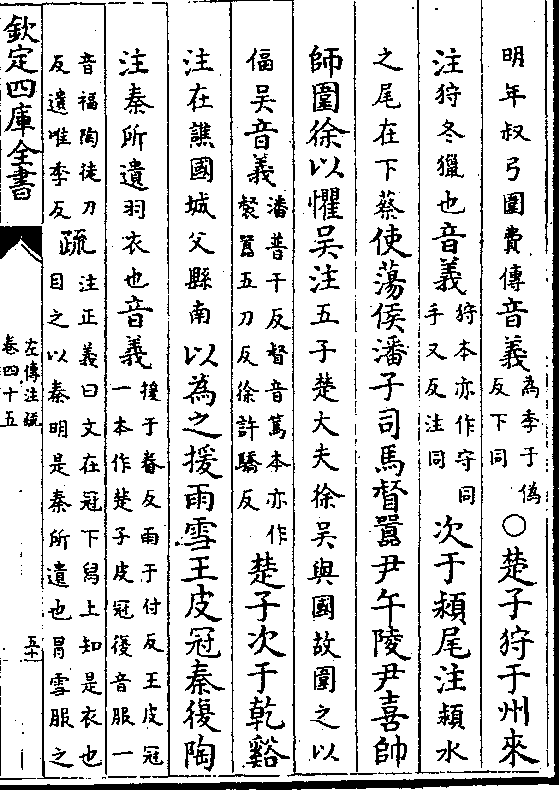 明年叔弓圍費傳音義為季于偽反下同○楚子狩于州來
注狩冬獵也音義狩本亦作守同手又反注同次于潁尾注潁水
之尾在下蔡使蕩侯潘子司馬督囂尹午陵尹喜帥
師圍徐以懼吳注五子楚大夫徐吳與國故圍之以
偪吳音義潘普干反督音篤本亦作裻囂五刀反徐許驕反楚子次于乾谿
注在譙國城父縣南以為之援雨雪王皮冠秦復陶
注秦所遺羽衣也音義援于眷反雨于付反王皮冠一本作楚子皮冠復音服一
音福陶徒刀反遺唯季反疏注正義曰文在冠下舄上知是衣也目之以秦明是秦所遺也冒雪服之
欽定四庫全書
左傳注疏
卷四十五
五十